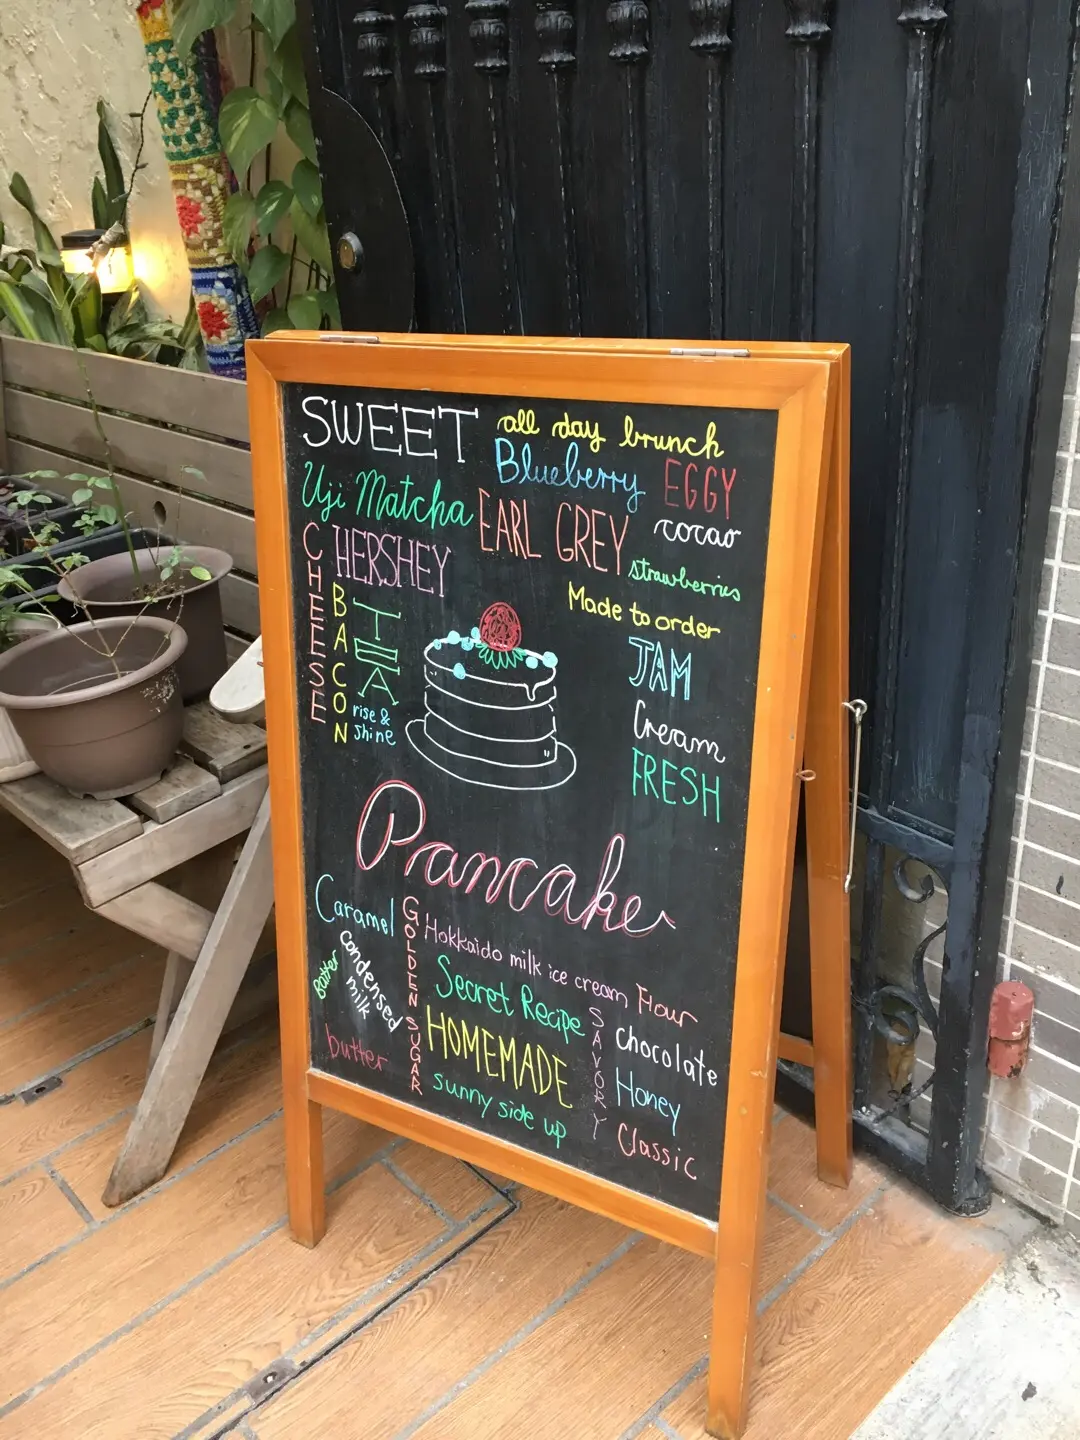 SWEET
all day brunch
Blueberry
EGGY
Uji Matcha
EARL GREY
cocao
CHEESE
HERSHEY
strawberries
BACON
TEA
Made to order
rise &
shine
JAM
Cream
FRESH
Pancake
Caramel
GOLDEN SUGAR
Hokkaido milk ice cream
Flour
Batter
Condensed
milk
Secret Recipe
SAVORY
chocolate
butter
HOMEMADE
Honey
sunny side up
Classic